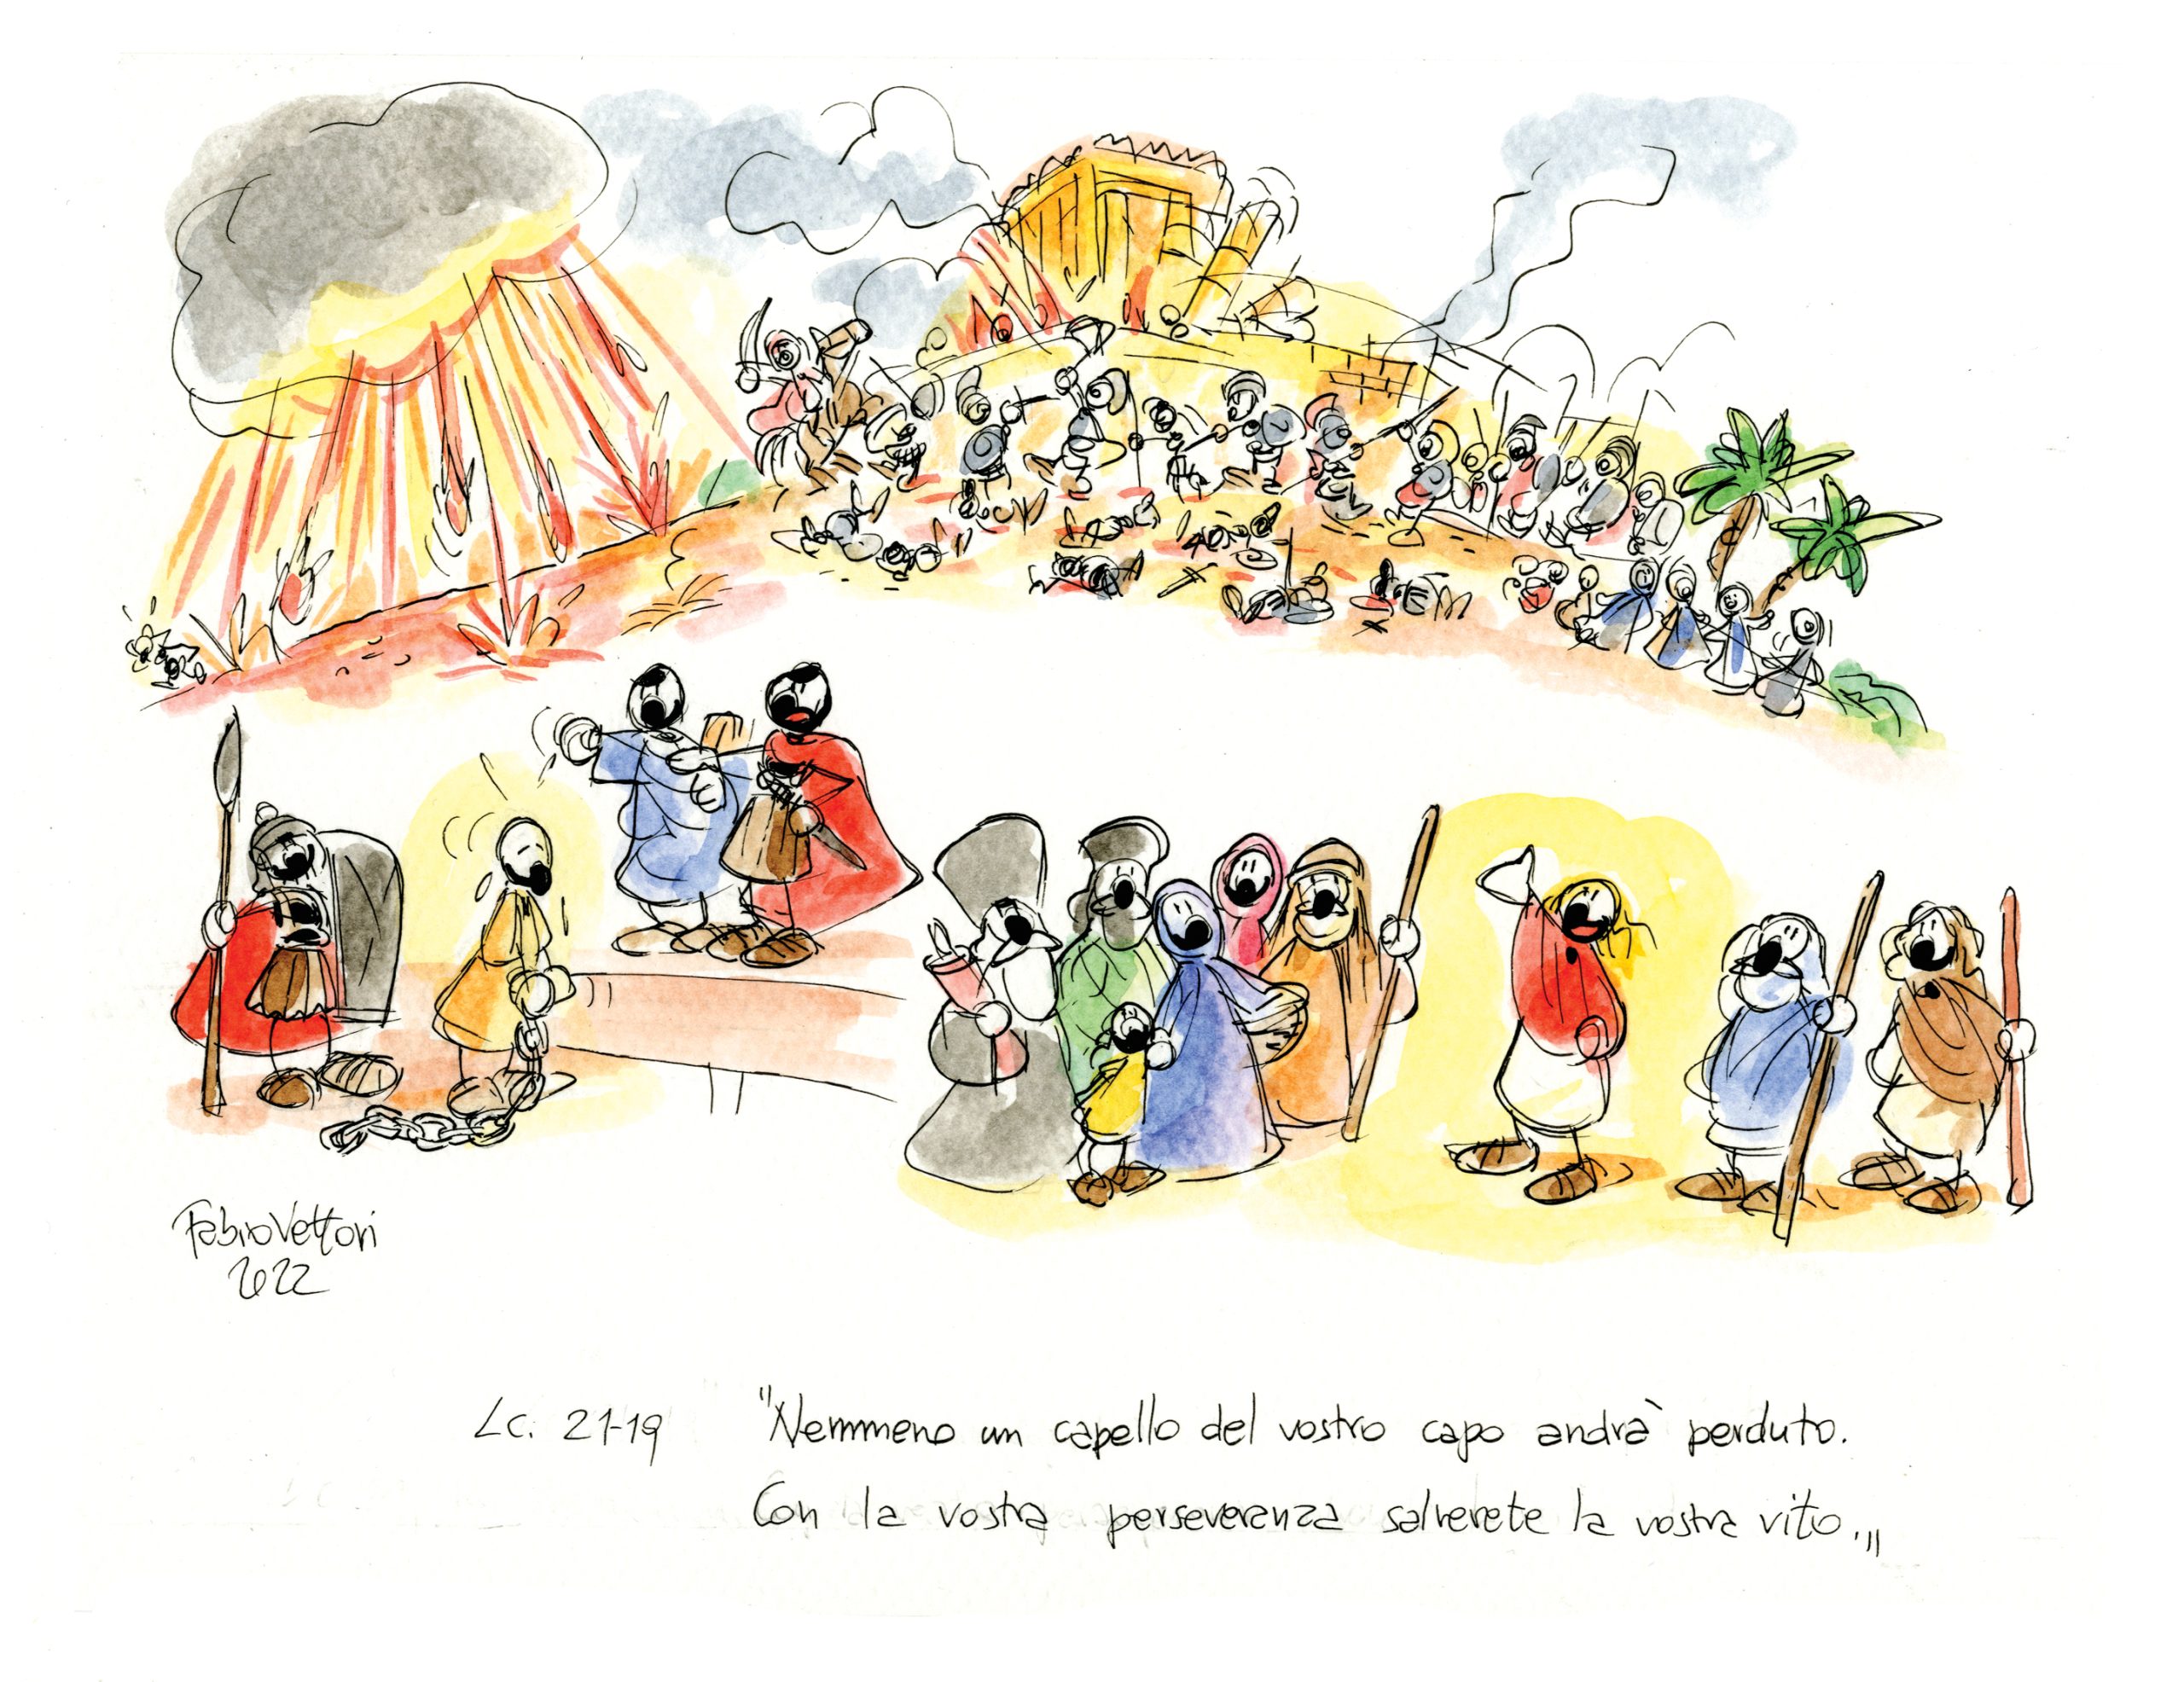 Fabio Vettori
2022
Lc. 21-19 "Nemmeno un capello del vostro capo andrà perduto.
Con la vostra perseveranza salverete la vostra vita."